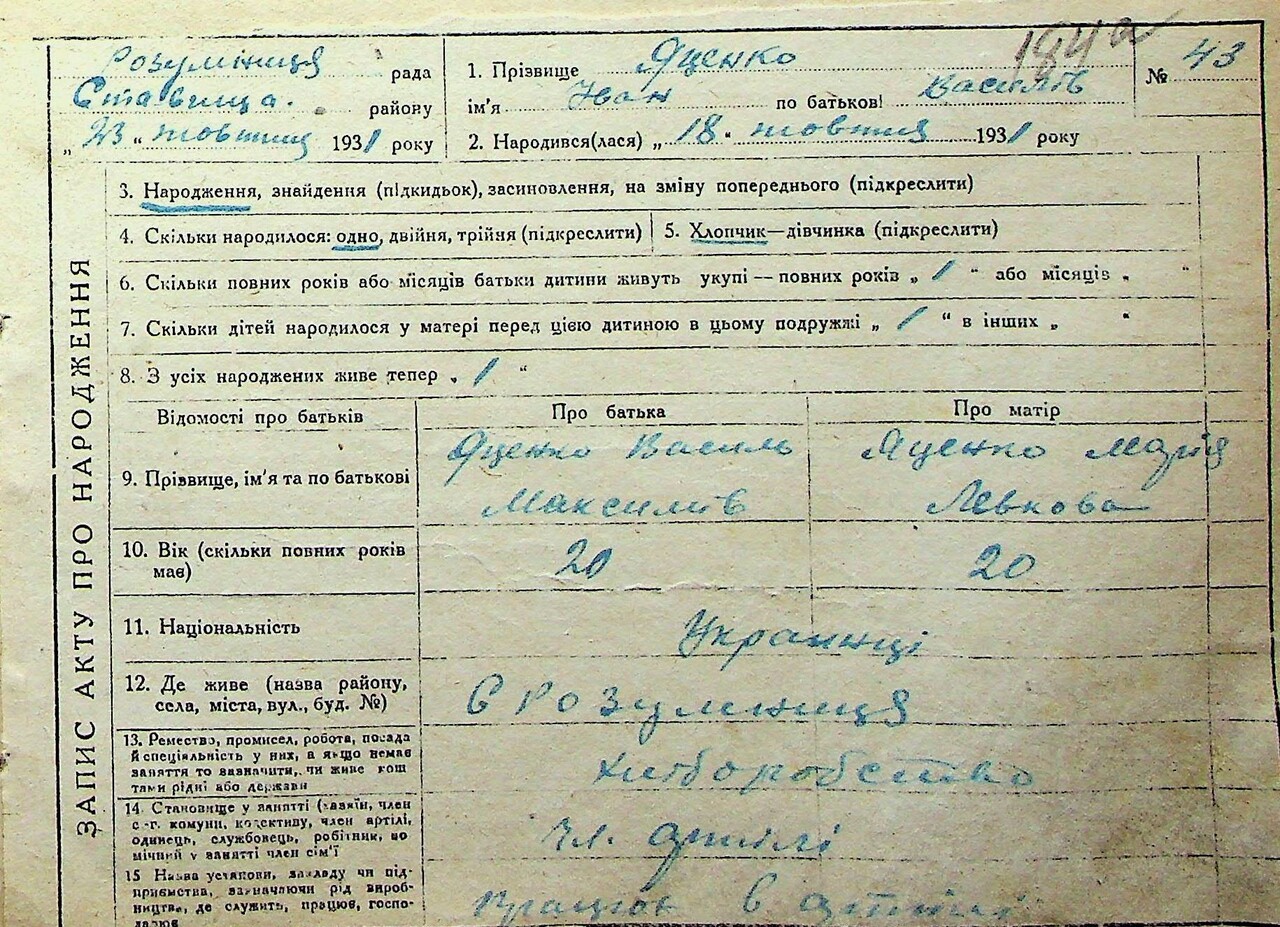 184а
Розумниця рада
Ставища. району
„ 23 " жовтня 1931 року
1. Прізвище Яценко
ім'я Іван по батькові Василів
№ 43
2. Народився(лася) „ 18 " жовтня 1931 року
ЗАПИС АКТУ ПРО НАРОДЖЕННЯ
3. Народження, знайдення (підкидьок), засиновлення, на зміну попереднього (підкреслити)
4. Скільки народилося: одно, двійня, трійня (підкреслити)
5. Хлопчик—дівчинка (підкреслити)
6. Скільки повних років або місяців батьки дитини живуть укупі — повних років „ 1 " або місяців „ "
7. Скільки дітей народилося у матері перед цією дитиною в цьому подружжі „ 1 " в інших „ "
8. З усіх народжених живе тепер „ 1 "
Відомості про батьків Про батька Про матір
9. Прізвище, ім'я та по батькові
Яценко Василь
Максимів
Яценко Марія
Левкова
10. Вік (скільки повних років
має)
20 20
11. Національність
Українці
12. Де живе (назва району,
села, міста, вул., буд. №)
С Розумниця
13. Ремество, промисел, робота, посада
й спеціяльність у них, а якщо немає
заняття то зазначити, чи живе кош
тами рідні або держави
хліборобство
14. Становище у занятті (хазяїн, член
с.-г. комуни, колективу, член артілі,
одинець, службовець, робітник, по
мічний у занятті член сім'ї
чл. артілі
15 Назва установи, закладу чи під-
приємства, зазначаючи рід вироб-
ництва, де служить, працює, госпо-
дарює
в артілі